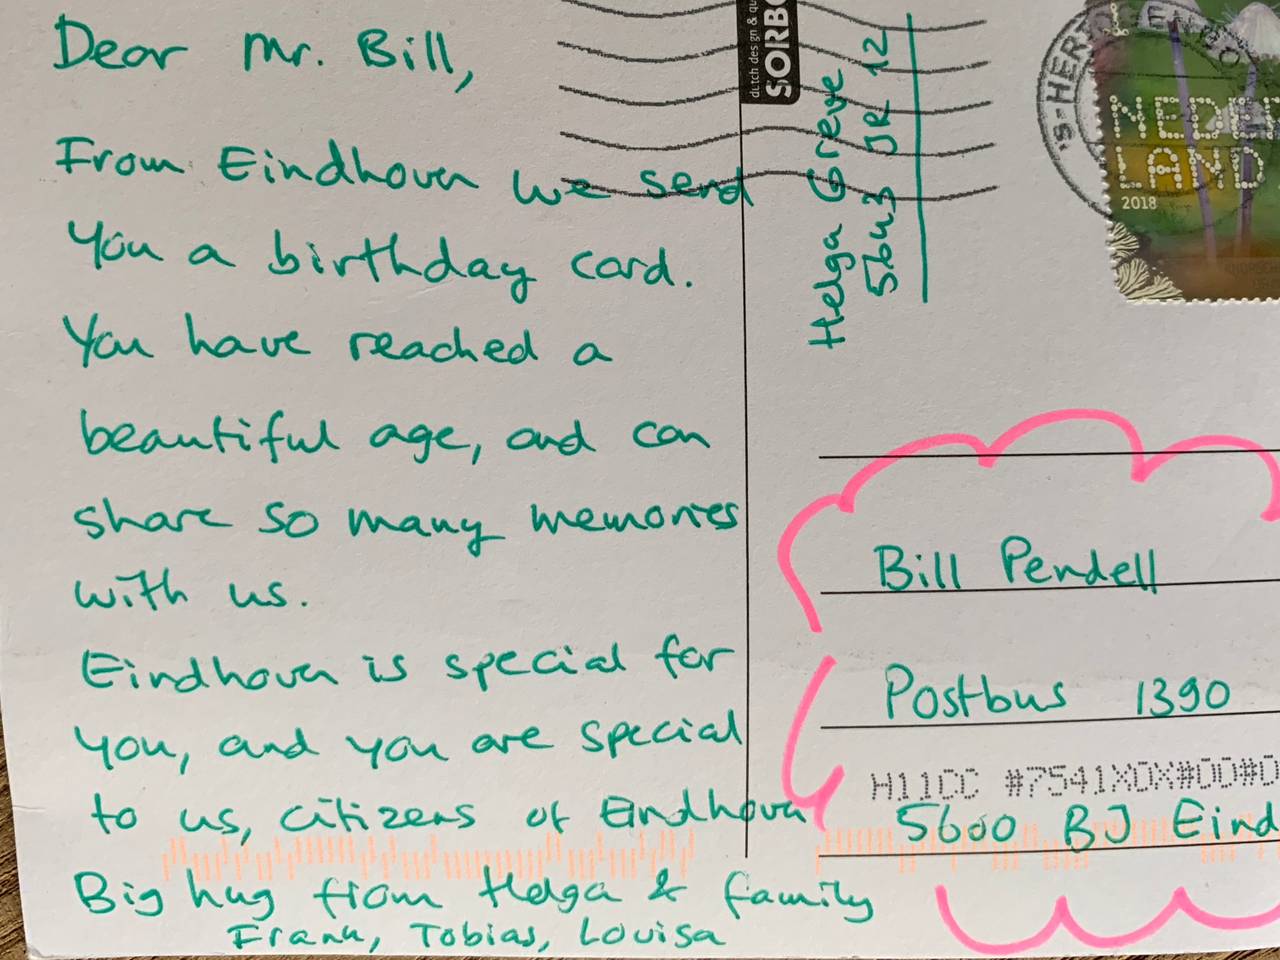 Dear Mr. Bill,
From Eindhoven we send
you a birthday card.
You have reached a
beautiful age, and can
share so many memories
with us.
Eindhoven is special for
you, and you are special
to us, citizens of Eindhoven
Big hug from Helga & family
Frank, Tobias, Louisa
dutch design & qu
SORBO
Helga Greve
5643 JR 12
'S-HERTOGENBO
NEDER
LAND
2018
Bill Pendell
Postbus 1390
H11CC #7541X0X#00#0
5600 BJ Eind